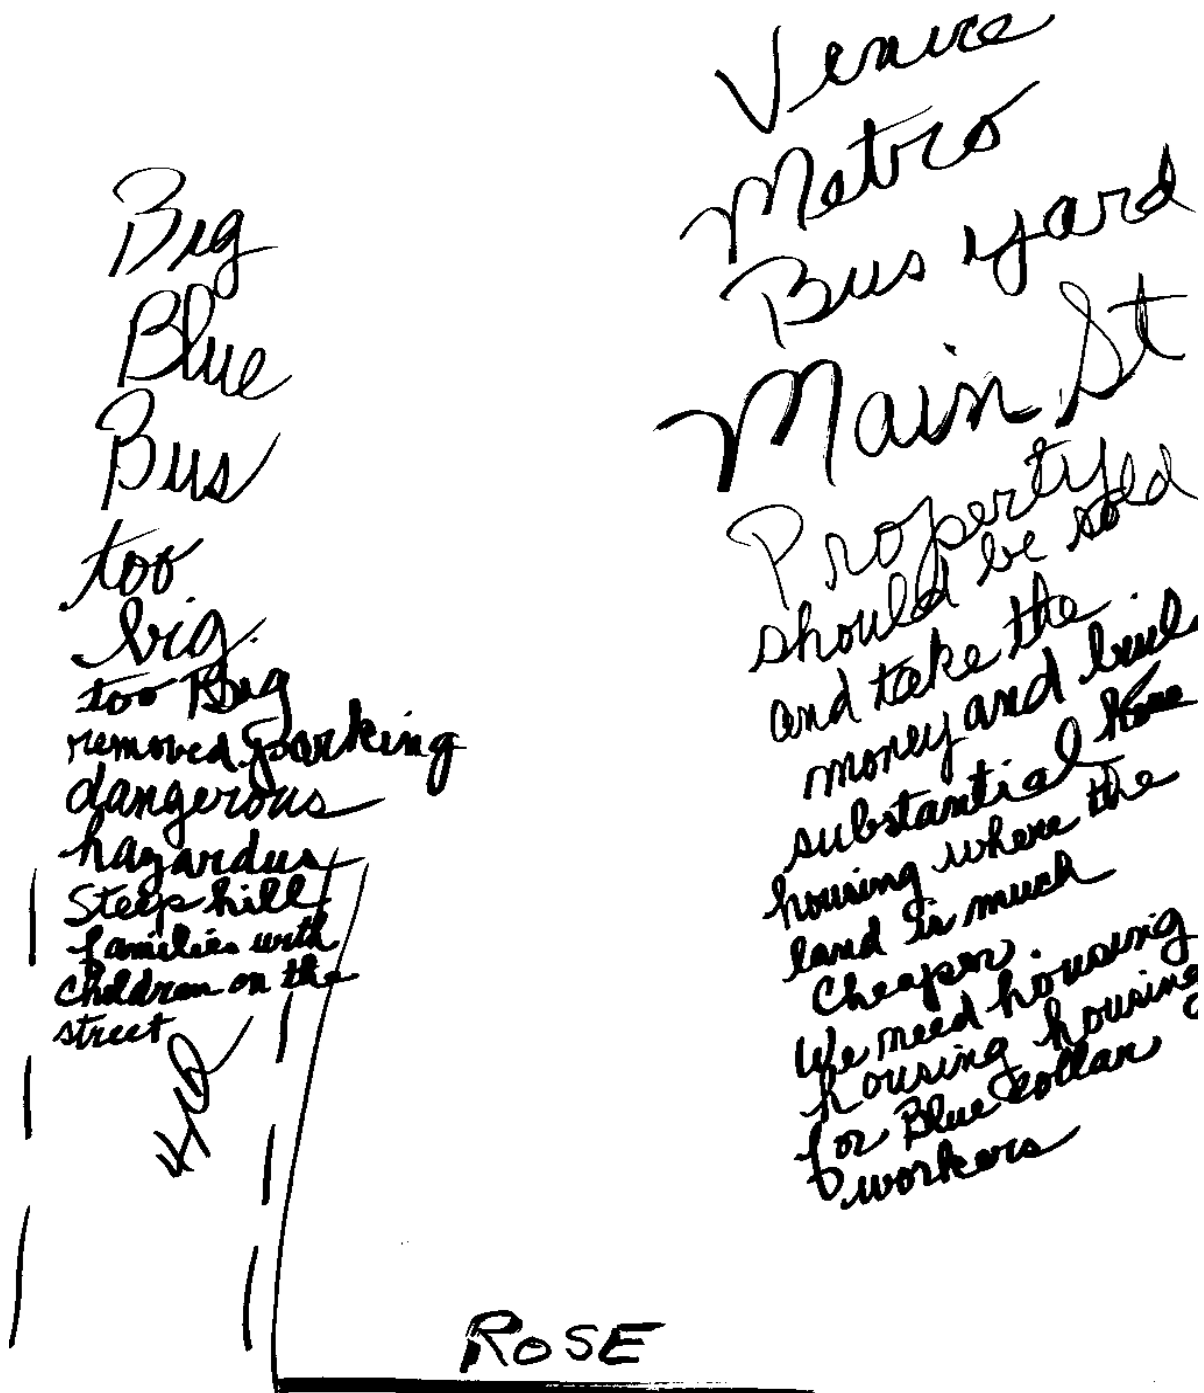 Big
Blue
Bus
too
big.
too Big
removed parking
dangerous
hazardus
Steep hill
families with
children on the
street
Venice
Metro
Bus yard
Main St
Property
should be sold
and take the
money and buil
substantial
housing where the
land is much
Cheaper
We need housing
housing housing
for Blue Collar
workers
ROSE